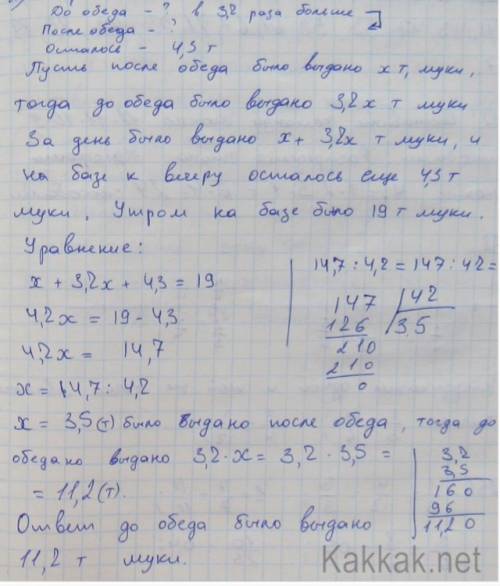 До обеда - ? в 3,2 раза больше
После обеда - ?
Осталось - 4,3 т
Пусть после обеда было выдано x т, муки,
тогда до обеда было выдано 3,2x т муки
За день было выдано x + 3,2x т муки, и
на базе к вечеру осталось еще 4,3 т
муки, Утром на базе было 19 т муки.
Уравнение:
x + 3,2x + 4,3 = 19
4,2x = 19 - 4,3
4,2x = 14,7
x = 14,7 : 4,2
14,7 : 4,2 = 147 : 42 =
147 42
126 3,5
210
210
0
x = 3,5 (т) было выдано после обеда, тогда до
обеда выдано 3,2 · x = 3,2 · 3,5 =
= 11,2 (т).
3,2
3,5
160
96
11,20
Ответ до обеда было выдано
11,2 т муки.
Kakkak.net